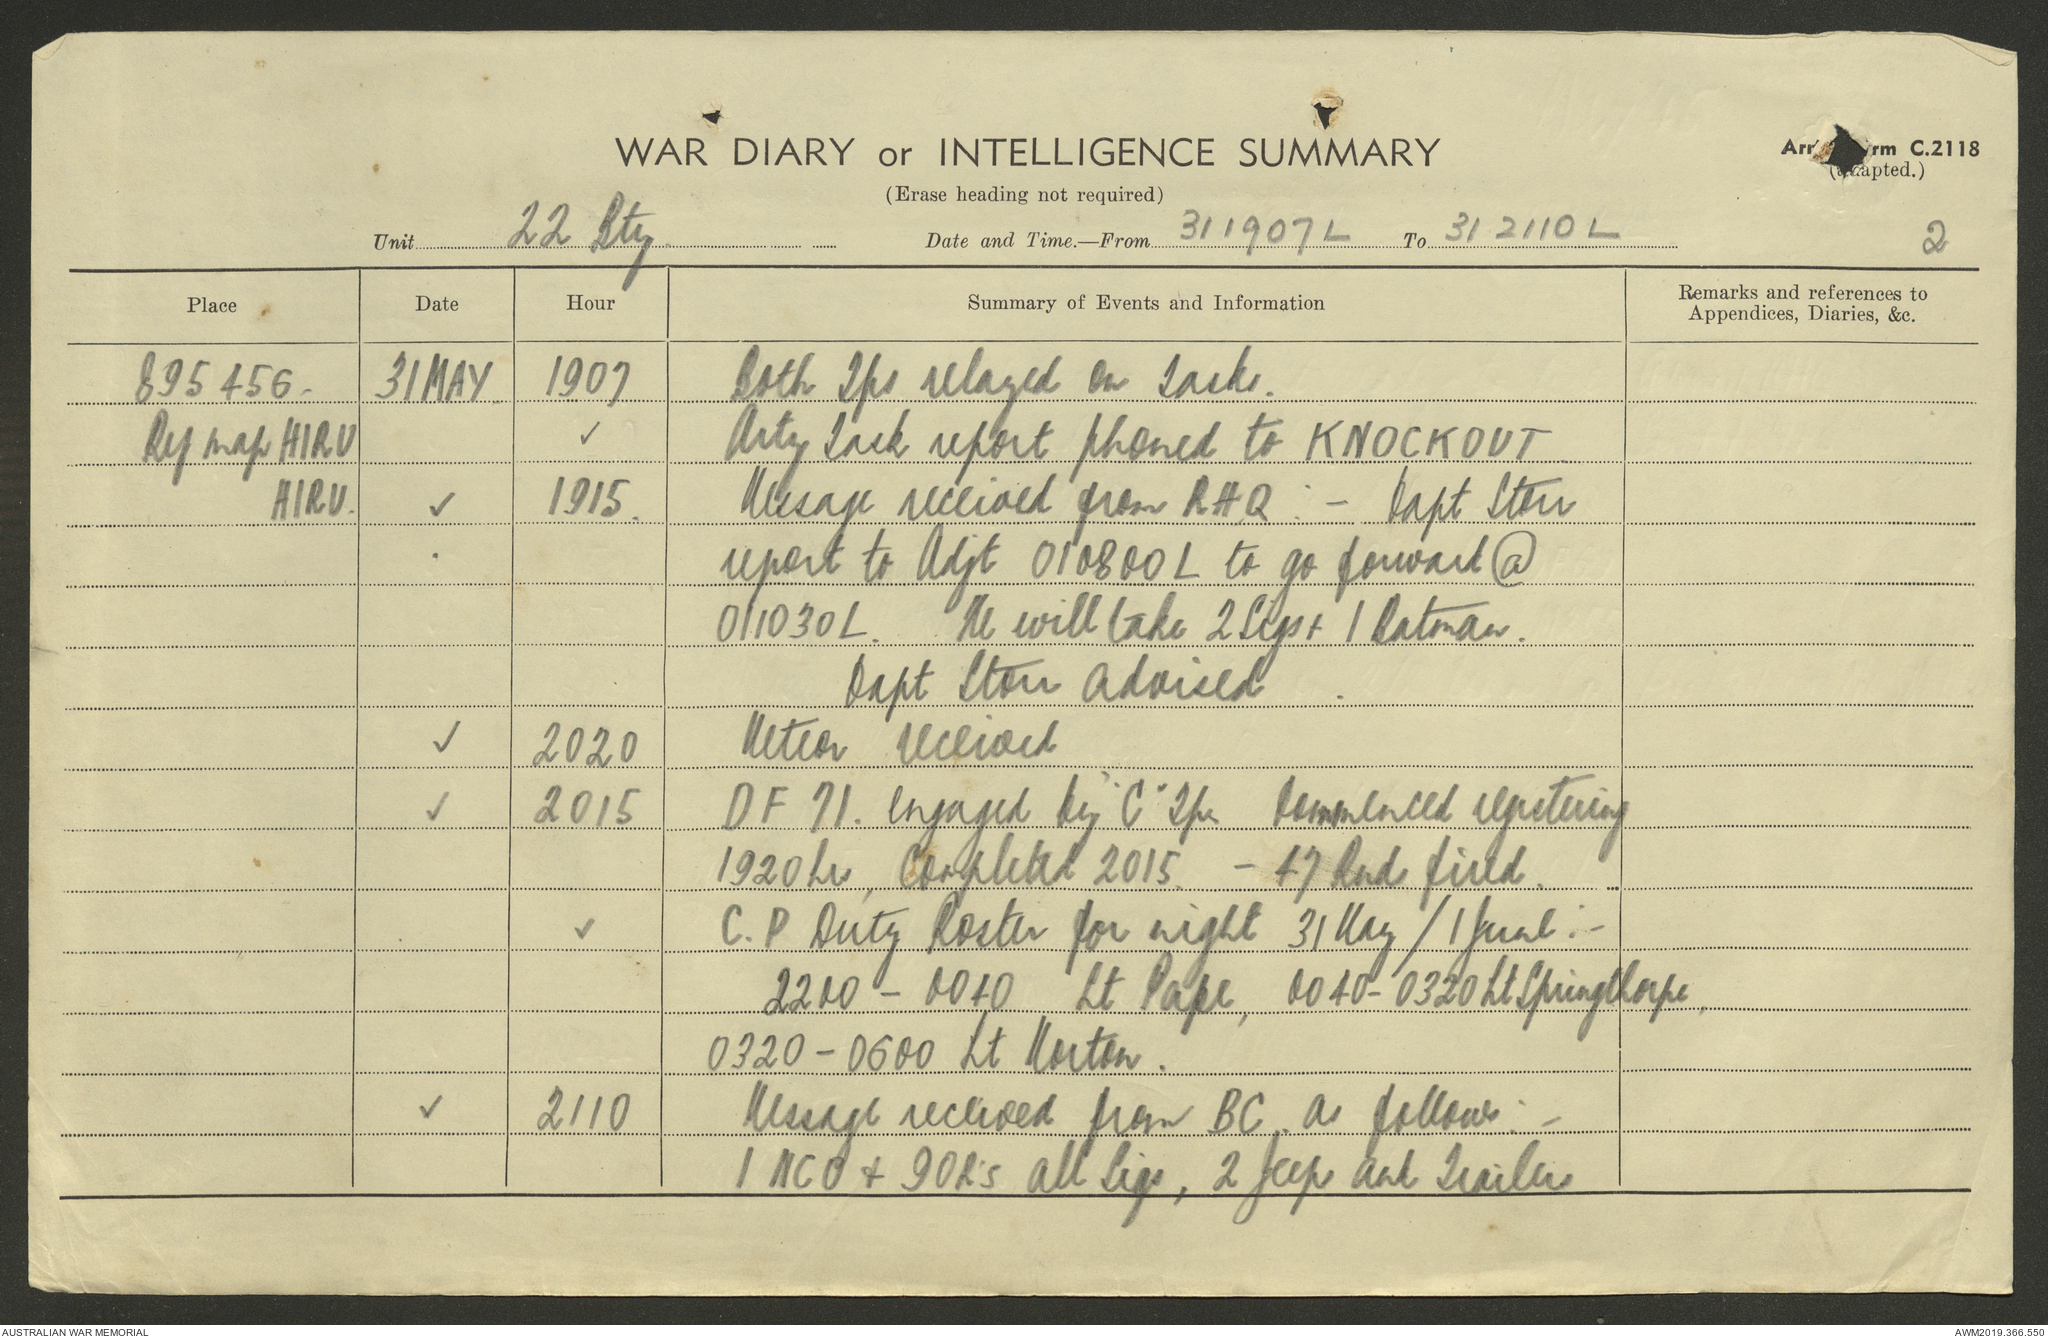 WAR DIARY or INTELLIGENCE SUMMARY
(Erase heading not required)
Army Form C.2118
(adapted.)
Unit 22 Bty. Date and Time.—From 311907L To 312110L
2
Place Date Hour Summary of Events and Information Remarks and references to Appendices, Diaries, &c.
895456. 31 MAY 1907 Both Tps relayed on tasks.
Ref map HIRU ✓ Arty Task report phoned to KNOCKOUT
HIRU. ✓ 1915. Message received from RHQ :- Capt Storr
report to Adjt 010800L to go forward @
011030L. He will take 2 Sigs + 1 Batman.
Capt Storr advised.
✓ 2020 Meteor received
✓ 2015 DF 71. engaged by "C" Tp. Commenced registering
1920 hrs, Completed 2015. - 47 Rnds fired.
✓ C.P Duty Roster for night 31 May / 1 June :-
2200 - 0040 Lt Pape, 0040 - 0320 Lt Springthorpe,
0320 - 0600 Lt Norton.
✓ 2110 Message received from BC. as follows :-
1 NCO + 9 OR's all Sigs, 2 Jeeps and Trailers
AUSTRALIAN WAR MEMORIAL
AWM2019.366.550